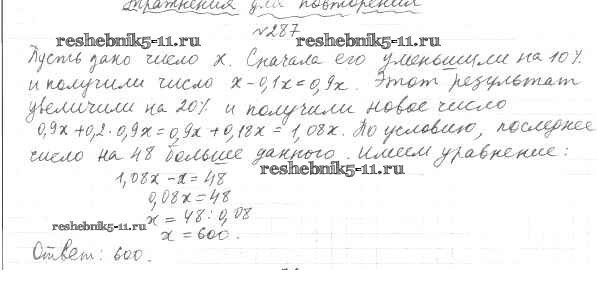 Упражнения для повторения
№287
reshebnik5-11.ru reshebnik5-11.ru
Пусть дано число x. Сначала его уменьшили на 10%
и получили число x-0,1x=0,9x. Этот результат
увеличили на 20% и получили новое число
0,9x+0,2·0,9x=0,9x+0,18x=1,08x. По условию, последнее
число на 48 больше данного. Имеем уравнение:
reshebnik5-11.ru
1,08x-x=48
0,08x=48
x=48:0,08
reshebnik5-11.ru
x=600.
Ответ: 600.